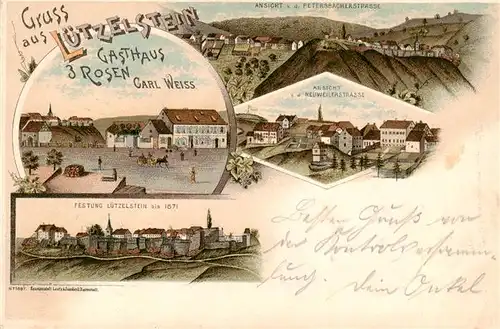 Gruss
aus LÜTZELSTEIN
GASTHAUS
3 ROSEN
CARL WEISS
ANSICHT v. d. PETERSBACHERSTRASSE
ANSICHT
v. d. NEUWEILERSTRASSE
FESTUNG LÜTZELSTEIN BIS 1871
Besten Gruß von
der Kontrolversamm-
lung. Dein Onkel